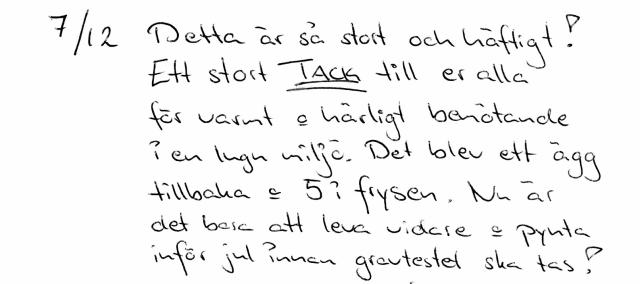 7/12 Detta är så stort och häftigt!
Ett stort TACK till er alla
för varmt & härligt bemötande
i en lugn miljö. Det blev ett ägg
tillbaka & 5 i frysen. Nu är
det bara att leva vidare & pynta
inför jul innan gravtestet ska tas!